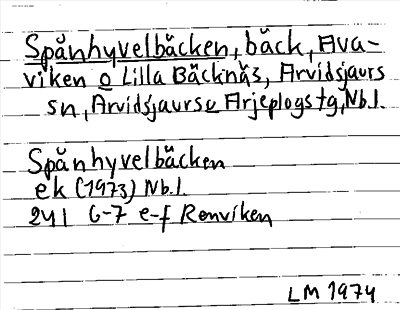 Spånhyvelbäcken, bäck, Ava-
viken o Lilla Bäcknäs, Arvidsjaurs
sn, Arvidsjaurs o Arjeplogs tg, Nb.l.
Spånhyvelbäcken
ek (1973) Nb.l.
24I 6-7 e-f Renviken
LM 1974